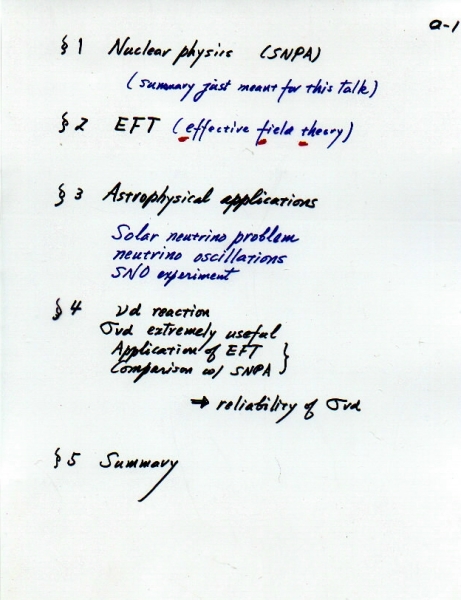 a-1
§ 1 Nuclear physics (SNPA)
(summary just meant for this talk)
§ 2 EFT (effective field theory)
§ 3 Astrophysical applications
Solar neutrino problem
neutrino oscillations
SNO experiment
§ 4 νd reaction
σνd extremely useful
Application of EFT }
Comparison w/ SNPA }
→ reliability of σνd
§ 5 Summary